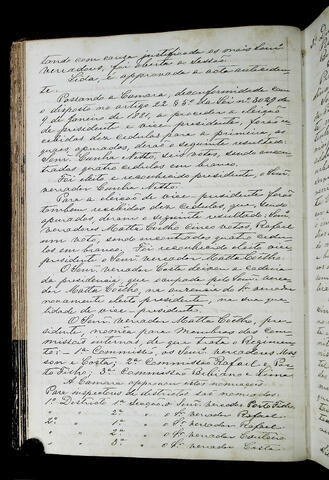 tando com causa justificada os mais Senrs
vereadores, foi aberta a sessão.
Lida, e approvada a acta antecedente
te.
Passando a Camara, de conformidade com
o disposto no artigo 22 § 5º da Lei nº 3029 de
9 de Janeiro de 1881, a proceder a eleição
de presidente e vice-presidente, forão re-
cebidas dez cedulas para a primeira, as
quaes, apuradas, derão o seguinte resultado:
Senr. Cunha Netto, seis votos, sendo encon-
tradas quatro cedulas em branco.
Foi eleito e reconhecido presidente, o Senr.
vereador Cunha Netto.
Para a eleição de vice-presidente forão
tambem recebidas dez cedulas, que sendo
apuradas, deram o seguinte resultado: Senrs.
vereadores Matta Coelho cinco votos, Rafael
um voto, sendo encontradas quatro cedu-
las em branco; Foi reconhecido eleito vice-
presidente o Senr. vereador Matta Coelho.
O Senr. vereador Costa deixou a cadeira
da presidencia, que occupada pelo Senr. verea-
dor Matta Coelho, na ausencia do Sr. vereador
novamente eleito presidente, na sua qua-
lidade de vice-presidente.
O Senr. vereador Matta Coelho, pre-
sidente, nomeia para Membros das Com-
missões internas, de que trata o Regimen-
to: - 1ª Commissão, os Senrs. vereadores
e Costa; 2ª Commissão Rafael e Por-
to Filho; 3ª Commissão
A Camara approvou estas nomeações
Para inspectores de districtos são nomeados:
1º Districto 1ª Secção o Senr. vereador Porto Filho,
" " 2ª " o Sr. vereador Rafael
2º " 1ª " o Sr. vereador Rafael
" " 2ª " o Sr. vereador
" " 3ª " o Sr. vereador Costa